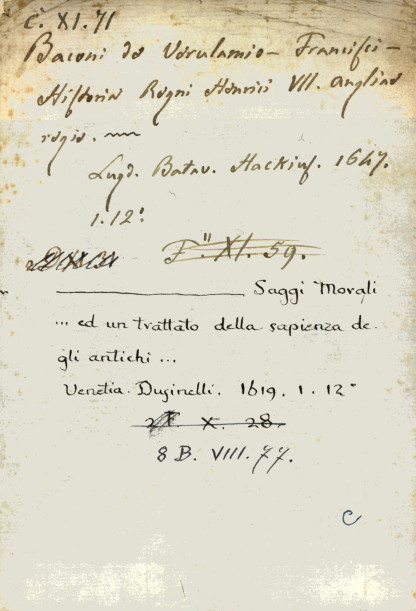 C. XI. 71
Baconi de Verulamio – Francisci –
Historia Regni Henrici VII. Angliae
regis.
Lugd. Batav. Hackius. 1647.
1. 12°
F." XI. 59.
Saggi Morali
... ed un trattato della sapienza de
gli antichi ...
Venetia. Duginelli. 1619. 1. 12°
X. 28.
8 B. VIII. 77.
C